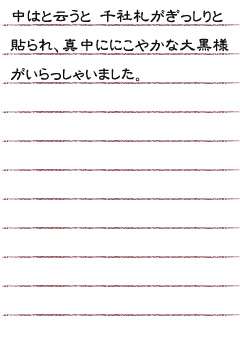 中はと云うと 千社札がぎっしりと
貼られ、真中ににこやかな大黒様
がいらっしゃいました。